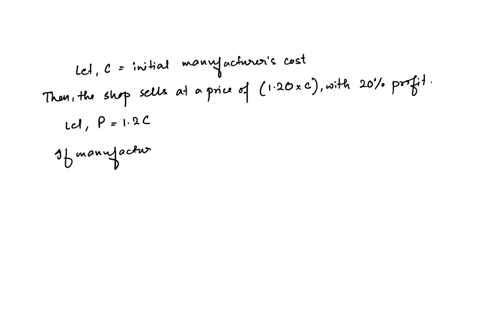 Let, C = initial manufacturer's cost
Then, the shop sells at a price of (1.20 × C), with 20% profit.
Let, P = 1.2C
If manufactur